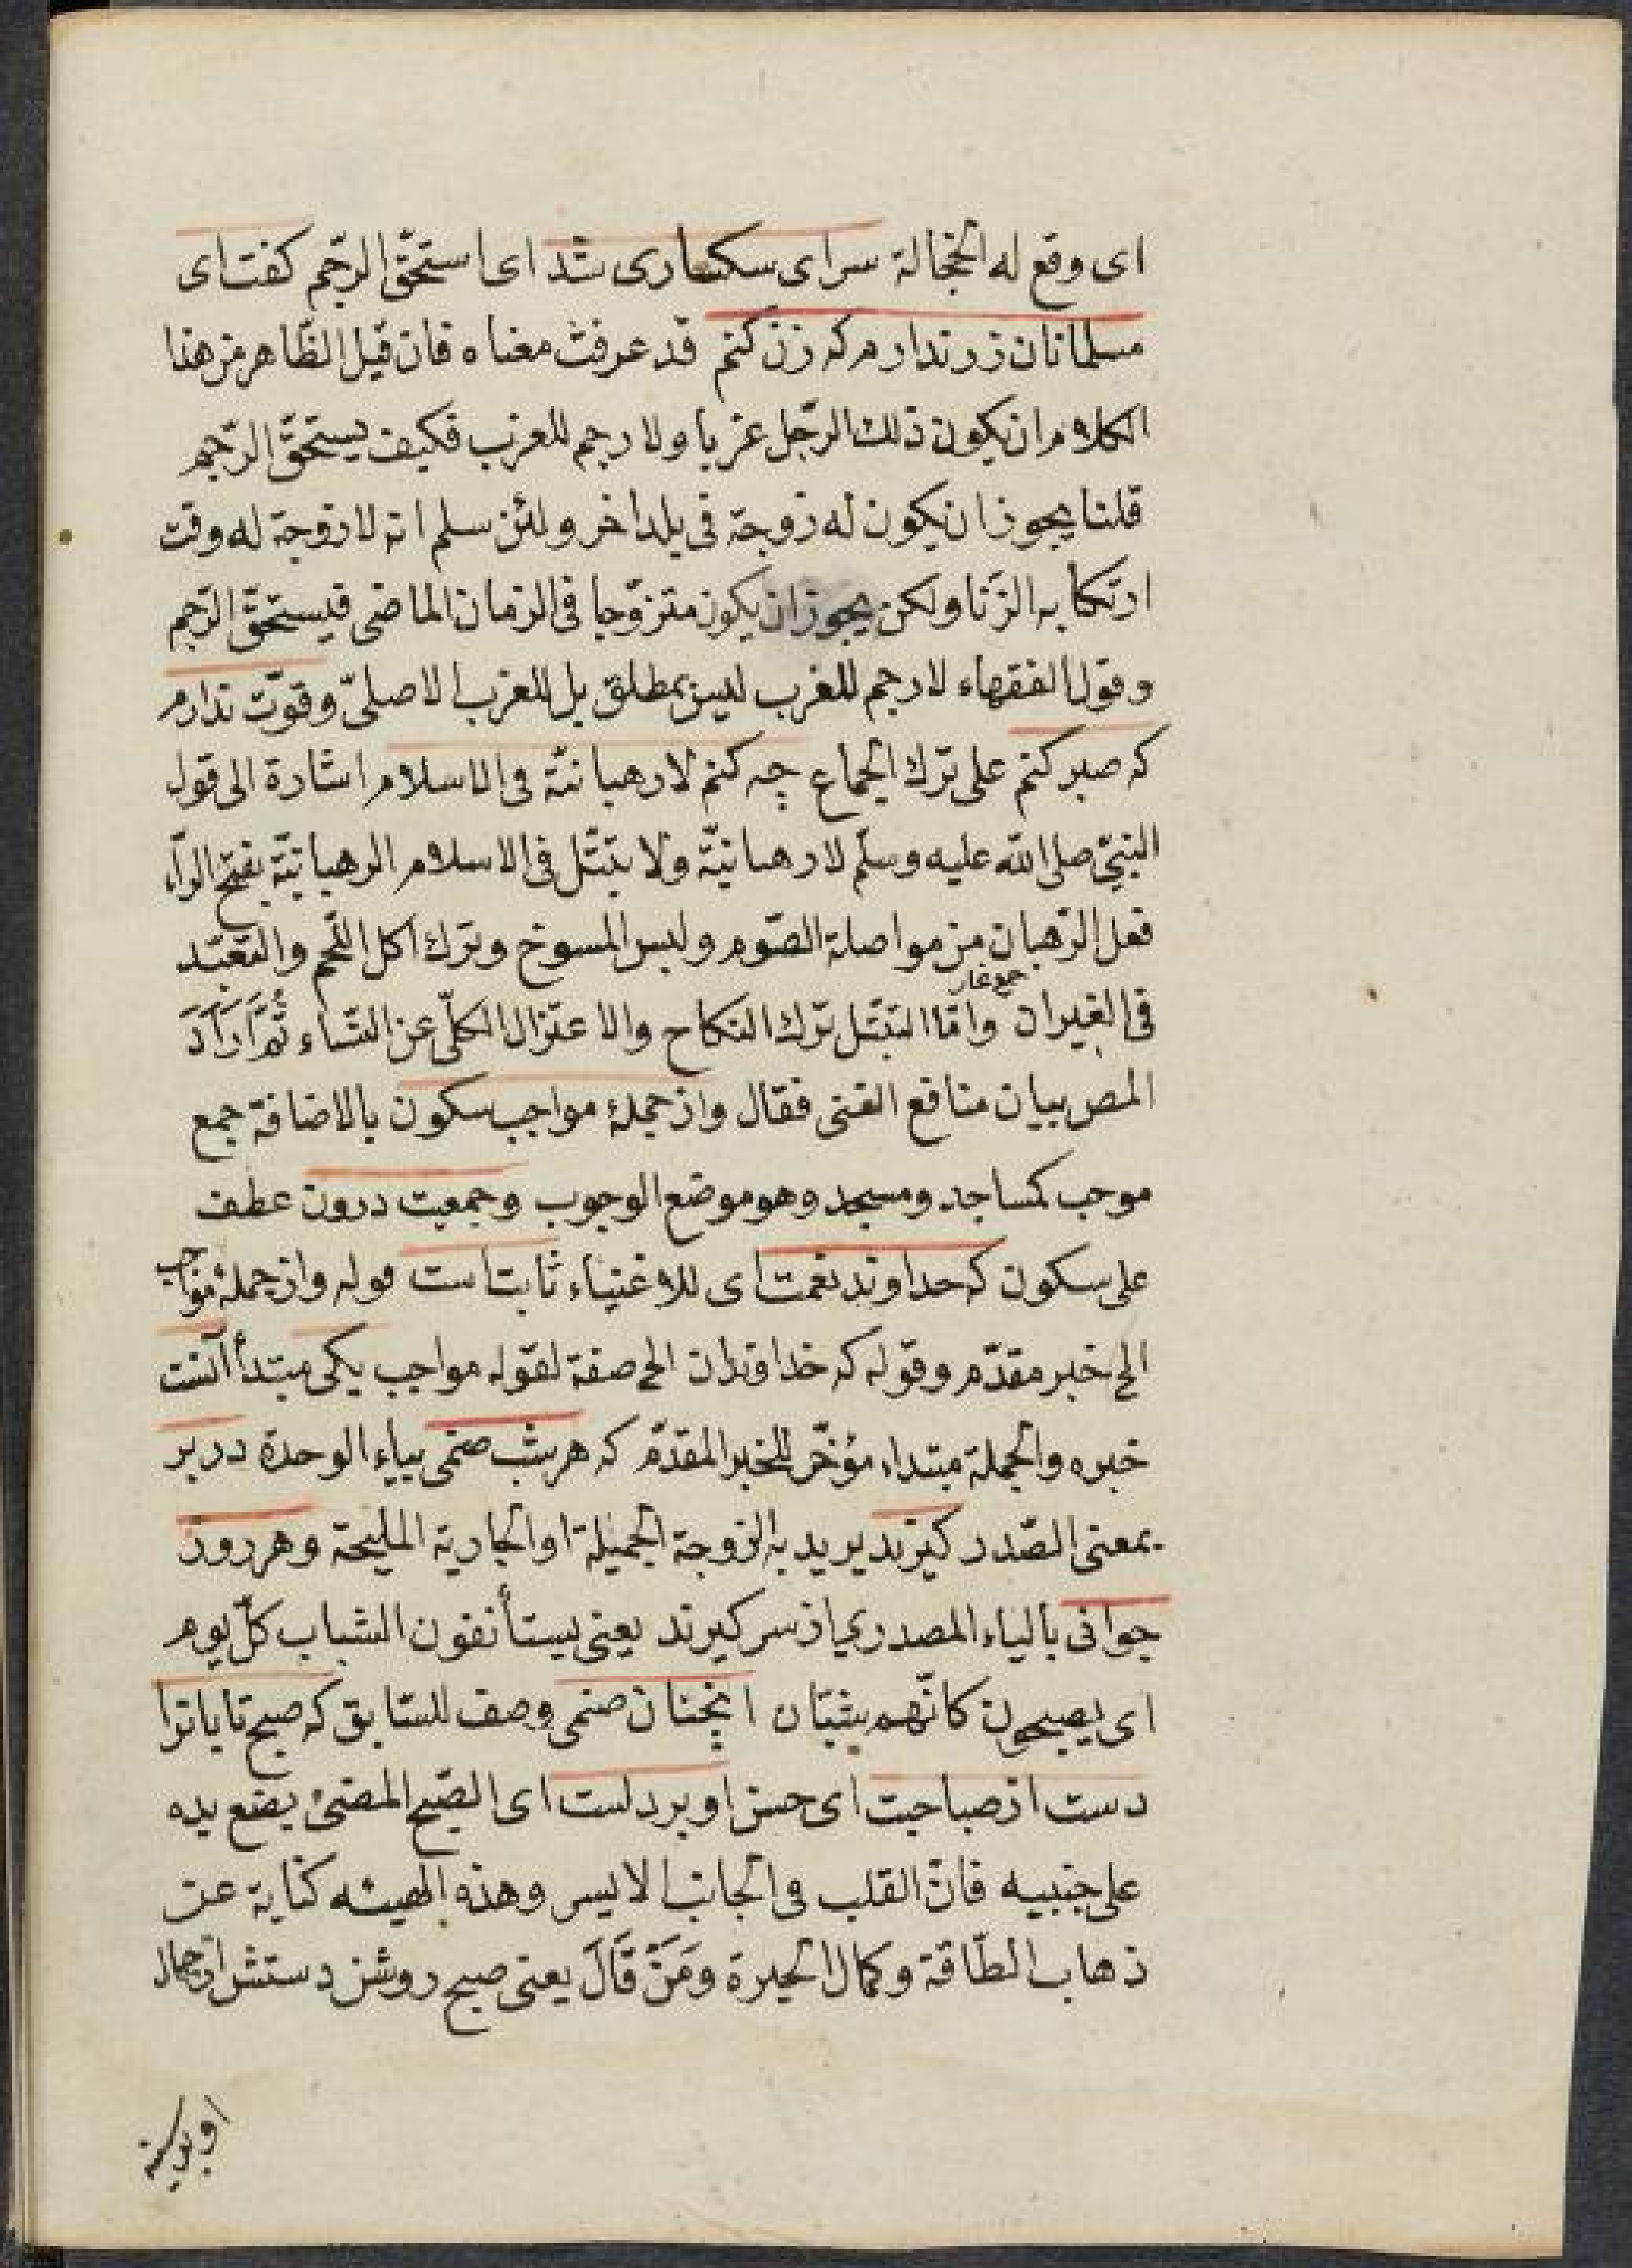 اى وقع له الخجالة سراى سكسارى شد اى استحقّ الرّجم كفت اى
مسلمانان زر ندارم كه زن كنم قد عرفت معناه فان قيل الظّاهر من هذا
الكلام ان يكون ذلك الرّجل عزبا ولا رجم للعزب فكيف يستحقّ الرّجم
قلنا يجوز ان يكون له زوجة فى بلد اخر ولئن سلم انه لا زوجة له وقت
ارتكابه الزّنا ولكن يجوز ان يكون متزوّجا فى الزمان الماضى فيستحقّ الرّجم
وقول الفقهاء لا رجم للعزب ليس بمطلق بل للعزب الاصلىّ وقوّت ندارم
كه صبر كنم على ترك الجماع چه كنم لا رهبانيّة فى الاسلام اشارة الى قول
النبىّ صلى الله عليه وسلّم لا رهبانيّة ولا تبتّل فى الاسلام الرهبانيّة بفتح الرّاء
فعل الرّهبان من مواصلة الصّوم ولبس المسوخ وترك اكل اللّحم والتعبّد
فى الغيران جمع غار وامّا التبتّل ترك النكاح والاعتزال الكلّى عن النّساء ثُمَّ اَرَادَ
المص بيان منافع الغنى فقال واز جملهٔ مواجب سكون بالاضافة جمع
موجب كمساجد ومسجد وهو موضع الوجوب وجمعيت درون عطف
على سكون كه خداوند نعمت اى للاغنياء ثابت است قوله واز جملهٔ مواجب
الخ خبر مقدّم وقوله كه خداوندان الخ صفة لقوله مواجب يكى مبتدأ آنست
خبره والجملة مبتداء مؤخّر للخبر المقدّم كه هر شب صنمى بياء الوحدة در بر
بمعنى الصّدر كيرند يريد به الزوجة الجميلة او الجارية المليحة وهر روز
جوانى بالياء المصدرى از سر كيرند يعنى يستأنفون الشباب كلّ يوم
اى يصبحون كانّهم شبّان انچنان صنمى وصف للسّابق كه صبح تابانرا
دست از صباحت اى حسن او بر دلست اى الصّبح المضئ يضع يده
على جنبيه فانّ القلب فى الجانب الايسر وهذه الهيئه كناية عن
ذهاب الطّاقة وكمال الحيرة وَمَنْ قَالَ يعنى صبح روشن دستش از جمال
او بر سينه